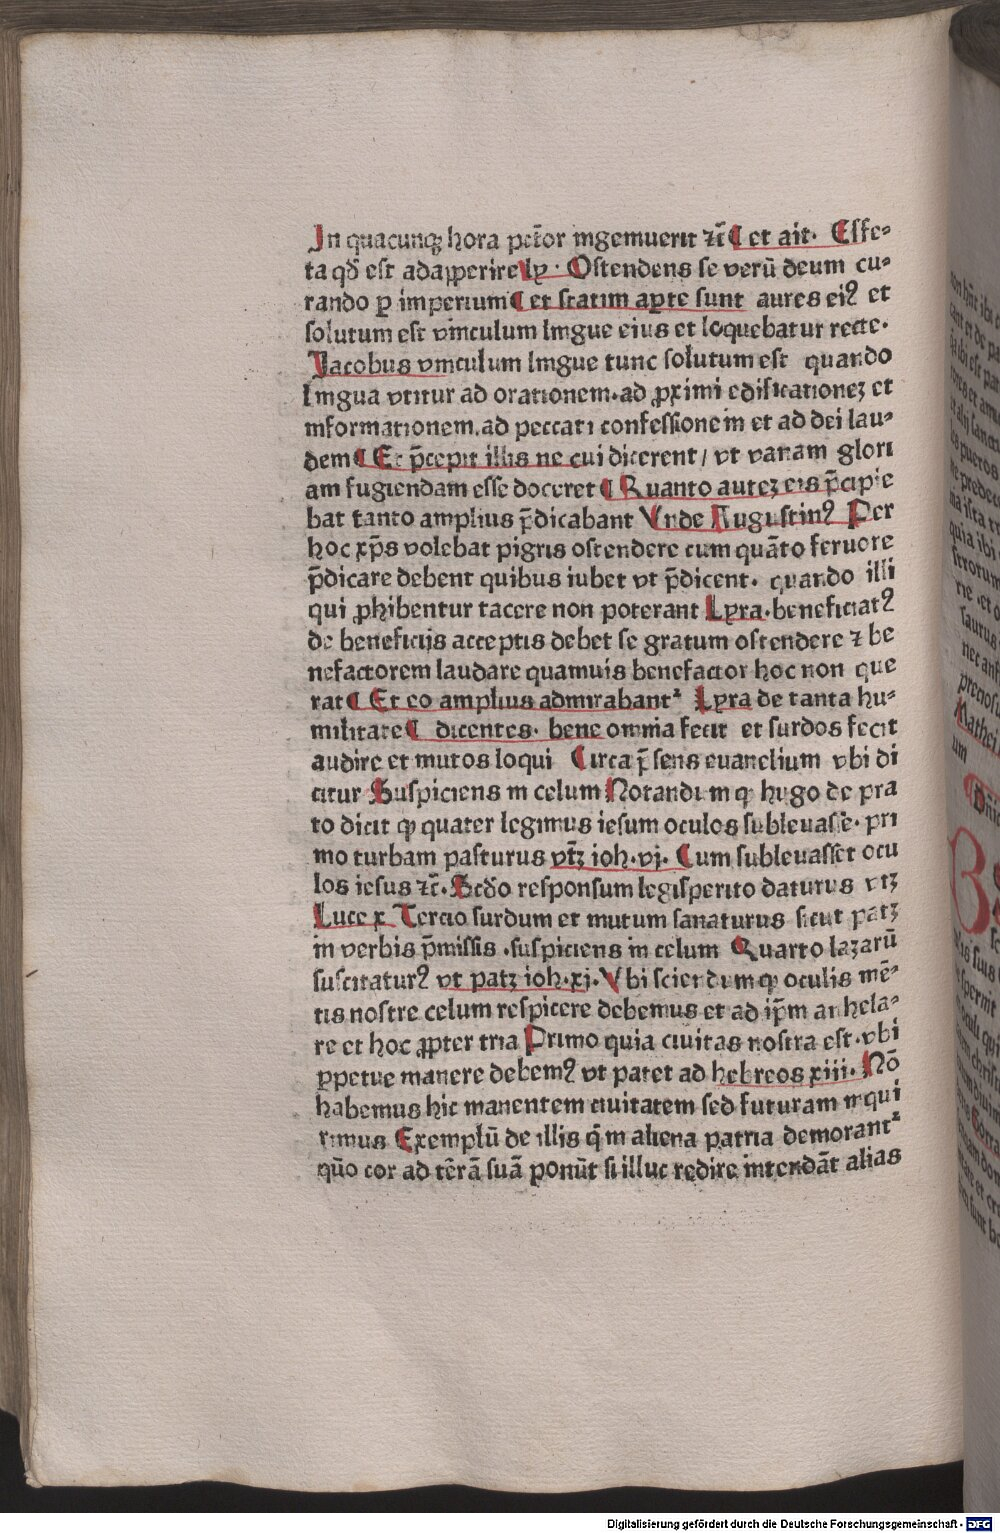 In quacunqꝫ hora pctõr ingemuerit ⁊c̃ ¶ et ait· Effe-
ta qd̃ est adaꝑperire ly· Ostendens se verũ deum cu-
rando ꝑ imperium ¶ et statim aꝑte sunt aures eiꝰ et
solutum est vinculum lingue eius et loquebatur recte·
Jacobus vinculum lingue tunc solutum est quando
lingua vtitur ad orationem·ad ꝓximi edificationeꝫ et
informationem.ad peccati confessionem et ad dei lau-
dem ¶ Et p̃cepit illis ne cui dicerent / vt vanam glori
am fugiendam esse doceret ¶ Quanto auteꝫ eis p̃cipie
bat tanto amplius p̃dicabant Vnde Augustinꝰ Per
hoc xp̃s volebat pigris ostendere cum quãto feruore
p̃dicare debent quibus iubet vt p̃dicent· quando illi
qui ꝓhibentur tacere non poterant Lyra·beneficiatꝰ
de beneficijs acceptis debet se gratum ostendere ⁊ be
nefactorem laudare quamuis benefactor hoc non que
rat ¶ Et eo amplius admirabant᷑ Lyra de tanta hu-
militate ¶ dicentes· bene omnia fecit et surdos fecit
audire et mutos loqui Circa p̃sens euanelium vbi di
citur Suspiciens in celum Notandum ꝙ hugo de pra
to dicit ꝙ quater legimus iesum oculos subleuasse· pri
mo turbam pasturus vtꝫ ioh·vj· Cum subleuasset ocu
los iesus ⁊c̃· Scd̃o responsum legisperito daturus vtꝫ
Luce x Tercio surdum et mutum sanaturus sicut patꝫ
in verbis p̃missis ·suspiciens in celum Quarto lazarũ
suscitaturꝰ vt patꝫ ioh·xj· Vbi sciendum ꝙ oculis mẽ-
tis nostre celum respicere debemus et ad ip̃m anhela-
re et hoc ꝓpter tria Primo quia ciuitas nostra est·vbi
ꝑpetue manere debemꝰ vt patet ad hebreos xiii· Nõ
habemus hic manentem ciuitatem sed futuram inqui
rimus Exemplũ de illis q̃ in aliena patria demorant᷑
qũo cor ad tẽrã suã ponũt si illuc redire intendãt alias
Digitalisierung gefördert durch die Deutsche Forschungsgemeinschaft - DFG